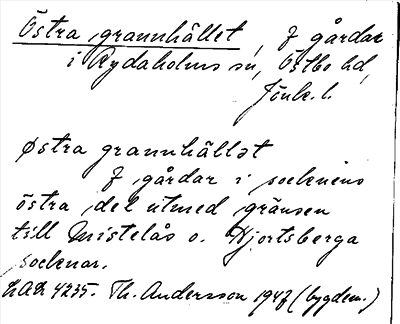 Östra grannhället, f gårdar
i Rydaholms sn, Östbo hd,
Jönk. l.
Østra grannhället
f gårdar i socknens
östra del utmed gränsen
till Mistelås o. Hjortsberga
socknar.
LAL 4235. Th. Andersson 1947 (bygdem.)